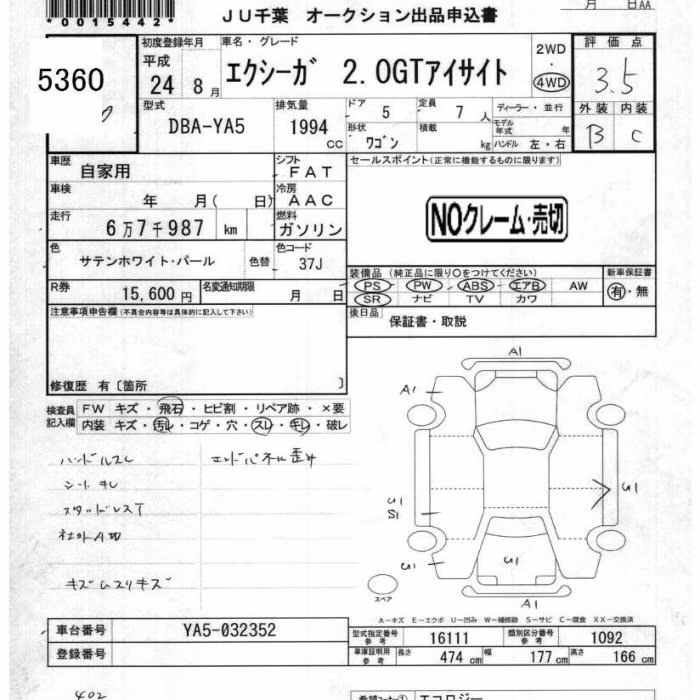 *0015442*
ＪＵ千葉 オークション出品申込書
月 日AA
5360
初度登録年月
平成
24 8 月
車名・グレード
エクシーガ 2.0GTアイサイト
2WD
・
4WD
評価点
3.5
外装 内装
B C
型式
DBA-YA5
排気量
1994 cc
ドア 5
定員 7 人
形状 ワゴン
積載 kg
ディーラー・並行
モデル年式 年
ハンドル 左・右
車歴
自家用
シフト
FAT
車検
年 月( 日)
冷房
AAC
走行
6万7千987 km
燃料
ガソリン
色
サテンホワイト・パール
色替
色コード
37J
R券
15,600 円
名変通知期限
月 日
セールスポイント(正常に機能するものに限ります)
NOクレーム・売切
装備品 (純正品に限り○をつけてください)
PS PW ABS エアB AW
SR ナビ TV カワ
新車保証書
有・無
後日品
保証書・取説
注意事項申告欄(不具合内容等は具体的に記入して下さい)
修復歴 有〔箇所 〕
検査員記入欄
FW キズ・飛石・ヒビ割・リペア跡・×要
内装 キズ・汚レ・コゲ・穴・スレ・キレ・破レ
ハンドルスレ
シートキレ
スタッドレスT
社外マフ
キズ ムスリキズ
エンドパネル歪み
A1
A1
U1
S1
U1
U1
U1
A1
スペア
A－キズ E－エクボ U－凹み W－補修跡 S－サビ C－腐食 XX－交換済
車台番号
YA5-032352
登録番号
型式指定番号
参考
16111
類別区分番号
参考
1092
車庫証明用
参考
長さ 474 cm
幅 177 cm
高さ 166 cm
402
希望コーナー①
エコロジー